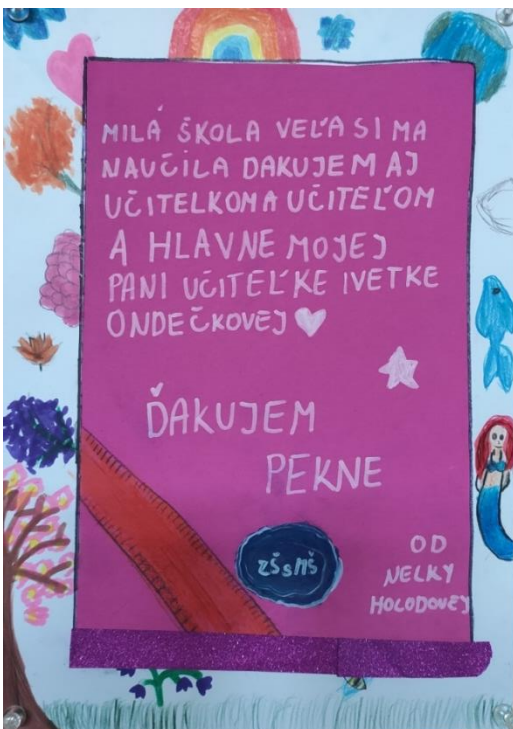 MILÁ ŠKOLA VEĽA SI MA
NAUČILA DAKUJEM AJ
UČITELKOM A UČITEĽOM
A HLAVNE MOJEJ
PANI UČITEĽKE IVETKE
ONDEČKOVEJ
ĎAKUJEM
PEKNE
ZŠsMŠ
OD
NELKY
HOLODOVEJ